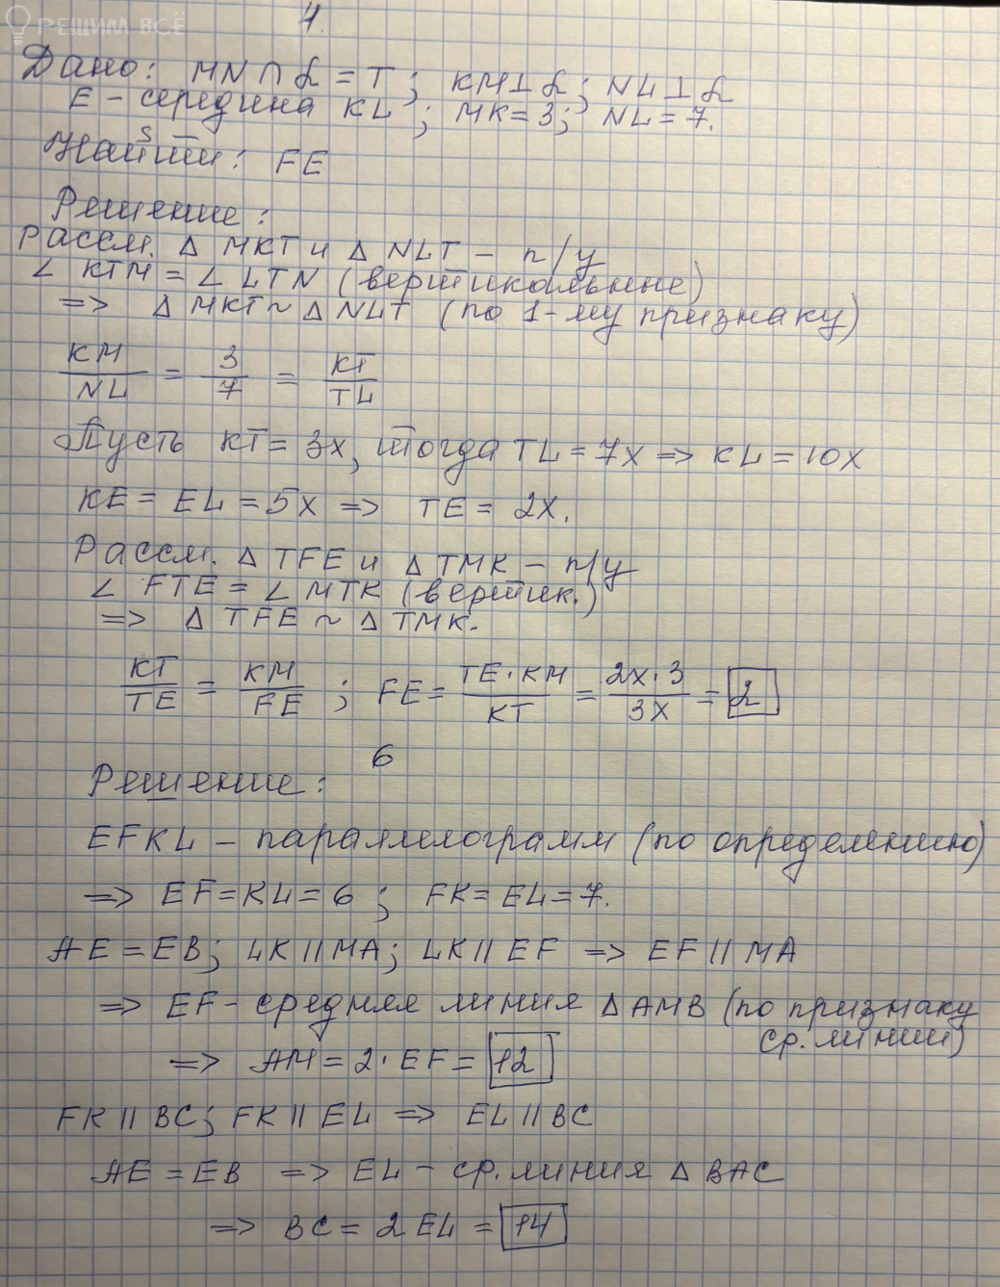 РЕШИМ ВСЁ
4.
Дано: MN ∩ α = T; KM ⊥ α; NL ⊥ α
E - середина KL; MK = 3; NL = 7.
Найти: FE
Решение:
Рассм. △ MKT и △ NLT - п/у
∠ KTM = ∠ LTN (вертикальные)
=> △ MKT ~ △ NLT (по 1-му признаку)
KM/NL = 3/7 = KT/TL
Пусть KT = 3x, тогда TL = 7x => KL = 10x
KE = EL = 5x => TE = 2x.
Рассм. △ TFE и △ TMK - п/у
∠ FTE = ∠ MTK (вертик.)
=> △ TFE ~ △ TMK.
KT/TE = KM/FE ; FE = TE · KM/KT = 2x · 3/3x = 2
6
Решение:
EFKL - параллелограмм (по определению)
=> EF = KL = 6 ; FK = EL = 7.
AE = EB; LK || MA; LK || EF => EF || MA
=> EF - средняя линия △ AMB (по признаку
ср. линии)
=> AM = 2 · EF = 12
FK || BC; FK || EL => EL || BC
AE = EB => EL - ср. линия △ BAC
=> BC = 2 EL = 14